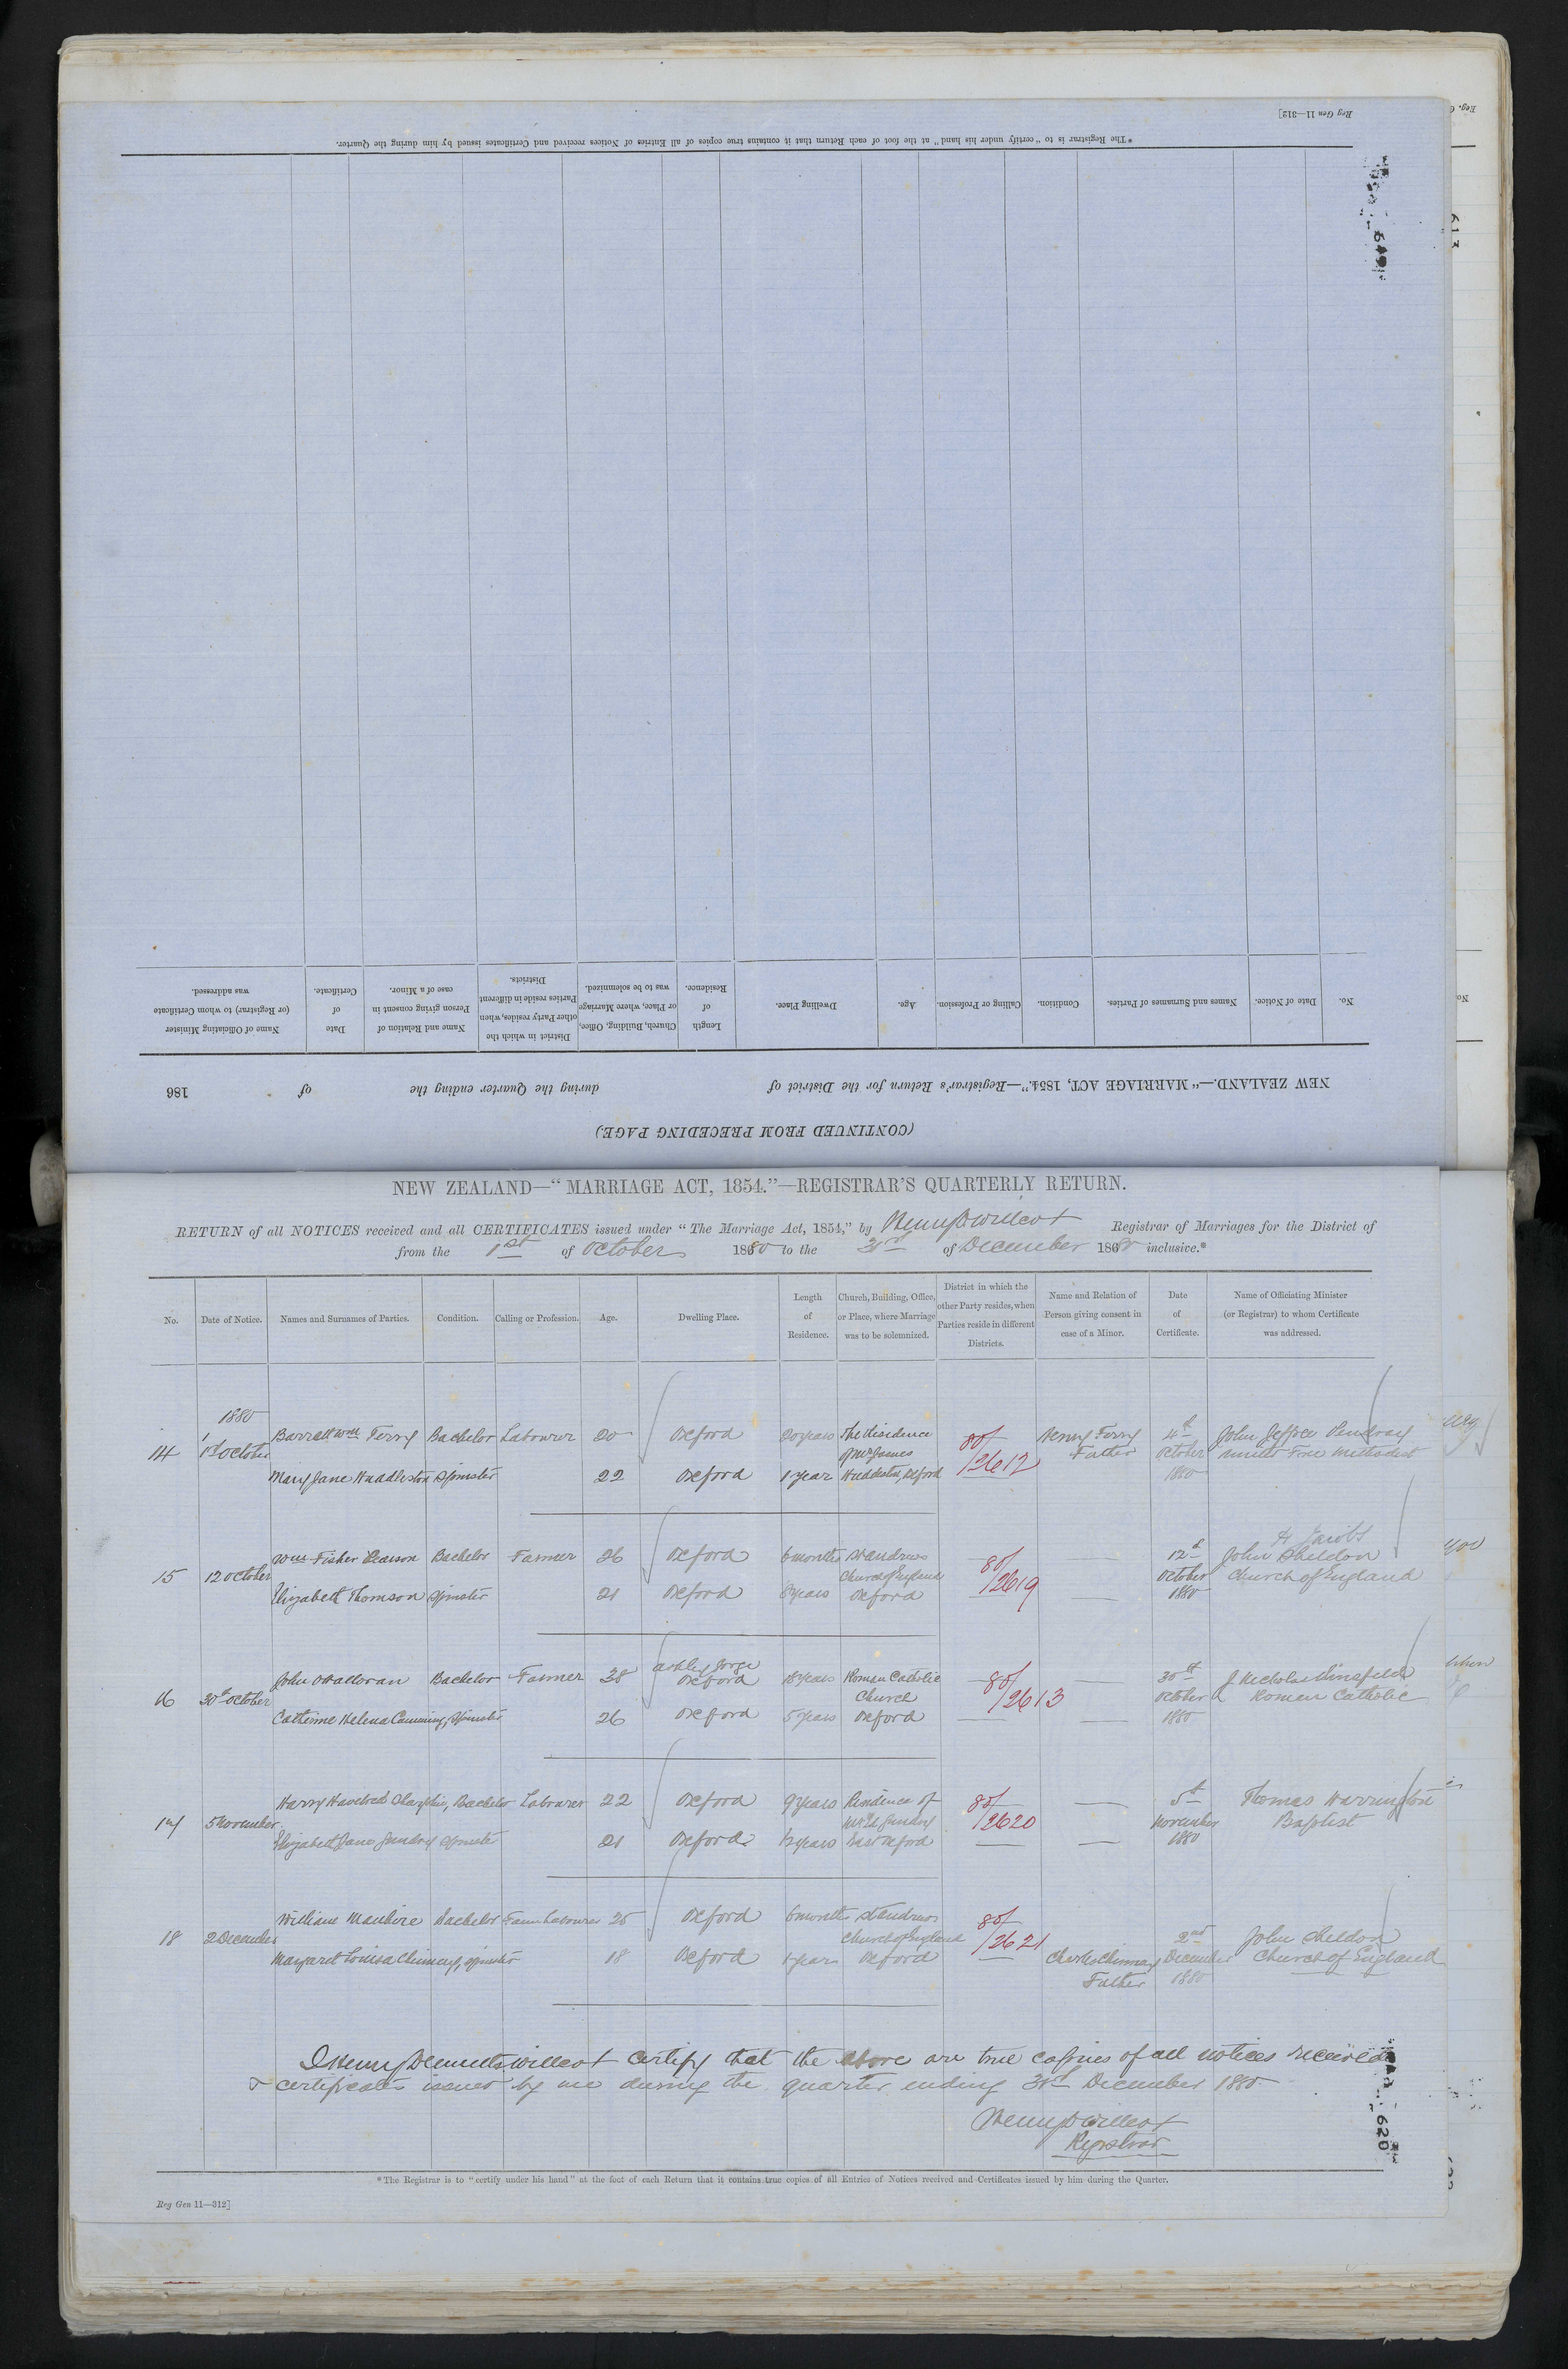 Reg Gen 11—312]
*The Registrar is to "certify under his hand" at the foot of each Return that it contains true copies of all Entries of Notices received and Certificates issued by him during the Quarter.
(CONTINUED FROM PRECEDING PAGE)
NEW ZEALAND.—"MARRIAGE ACT, 1854."—Registrar's Return for the District of during the Quarter ending the of 186
No. Date of Notice. Names and Surnames of Parties. Condition. Calling or Profession. Age. Dwelling Place. Length of Residence. Church, Building, Office, or Place, where Marriage was to be solemnized. District in which the other Party resides, when Parties reside in different Districts. Name and Relation of Person giving consent in case of a Minor. Date of Certificate. Name of Officiating Minister (or Registrar) to whom Certificate was addressed.
NEW ZEALAND—"MARRIAGE ACT, 1854."—REGISTRAR'S QUARTERLY RETURN.
RETURN of all NOTICES received and all CERTIFICATES issued under "The Marriage Act, 1854," by Henry D Willcox Registrar of Marriages for the District of
from the 1st of October 1880 to the 31st of December 1880 inclusive.*
No. Date of Notice. Names and Surnames of Parties. Condition. Calling or Profession. Age. Dwelling Place. Length of Residence. Church, Building, Office, or Place, where Marriage was to be solemnized. District in which the other Party resides, when Parties reside in different Districts. Name and Relation of Person giving consent in case of a Minor. Date of Certificate. Name of Officiating Minister (or Registrar) to whom Certificate was addressed.
1880
14 1st October Barrett Wm Ferry Bachelor Labourer 20 Oxford 20 years The Residence of Mr James Huddleston, Oxford 80/2617 Henry Ferry Father 4th October 1880 John Jeffree Pendray United Free Methodist
Mary Jane Huddleston Spinster 22 Oxford 1 year
15 12 October Wm Fisher Pearson Bachelor Farmer 26 Oxford 6 months St Andrews Church of England Oxford 80/2619 12th October 1880 H Jacobs John Sheldon Church of England
Elizabeth Thomson Spinster 21 Oxford 8 years
16 30th October John OHalloran Bachelor Farmer 38 Ashley Gorge Oxford 18 years Roman Catholic Church Oxford 80/2613 30th October 1880 Roman Catholic
Catherine Helena Cumming, Spinster 26 Oxford 5 years
17 5 November Harry Havelock Bachelor Labourer 22 Oxford 9 years Residence of East Oxford 80/2620 5th November 1880 Thomas Warrington Baptist
Elizabeth Jane Spinster 21 Oxford
18 2 December William Bachelor Farm Labourer 25 Oxford 6 months St Andrews Church of England Oxford 80/2621 2nd December 1880 John Sheldon Church of England
Margaret Louisa Chinnery, Spinster 18 Oxford Charles Chinnery Father
I Henry Willcox certify that the above are true copies of all notices received
& certificates issued by me during the quarter ending 31st December 1880
Henry D Willcox
Registrar
620
*The Registrar is to "certify under his hand" at the foot of each Return that it contains true copies of all Entries of Notices received and Certificates issued by him during the Quarter.
Reg Gen 11—312]